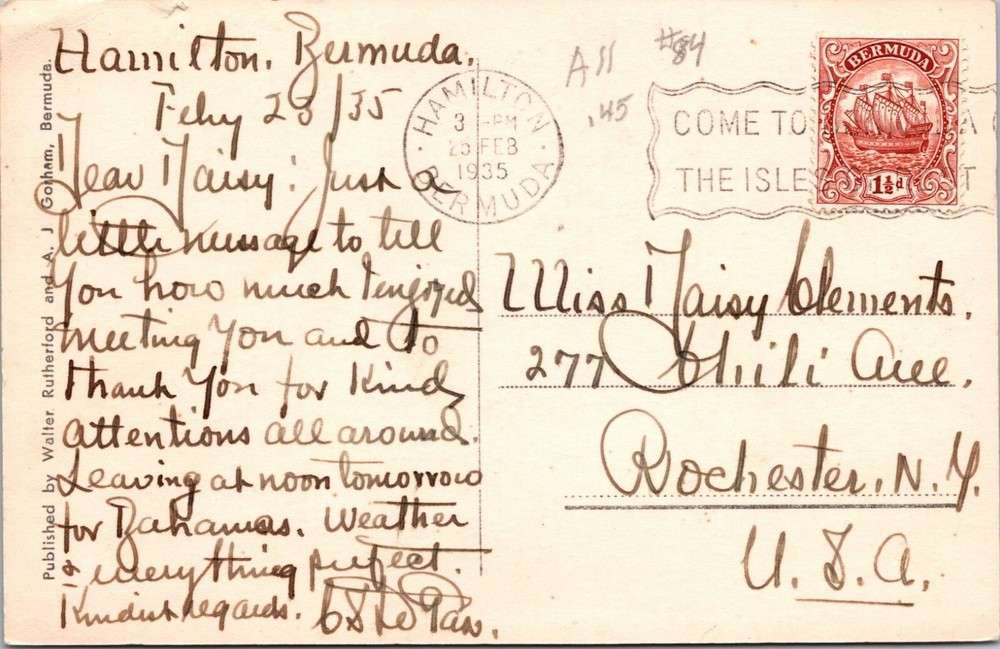 Hamilton. Bermuda.
Feby 23/35
Dear Daisy: Just a
little message to tell
you how much I enjoyed
meeting you and to
thank you for kind
attentions all around.
Leaving at noon tomorrow
for Bahamas. Weather
& everything perfect.
Kindest regards.
Published by Walter Rutherford and A. J Gorham, Bermuda.
All #84
.45
HAMILTON
3 -PM
25 FEB
1935
BERMUDA
COME TO
THE ISLES
BERMUDA
1½d
Miss Daisy Clements.
277 Chili Ave.
Rochester, N.Y.
U.S.A.